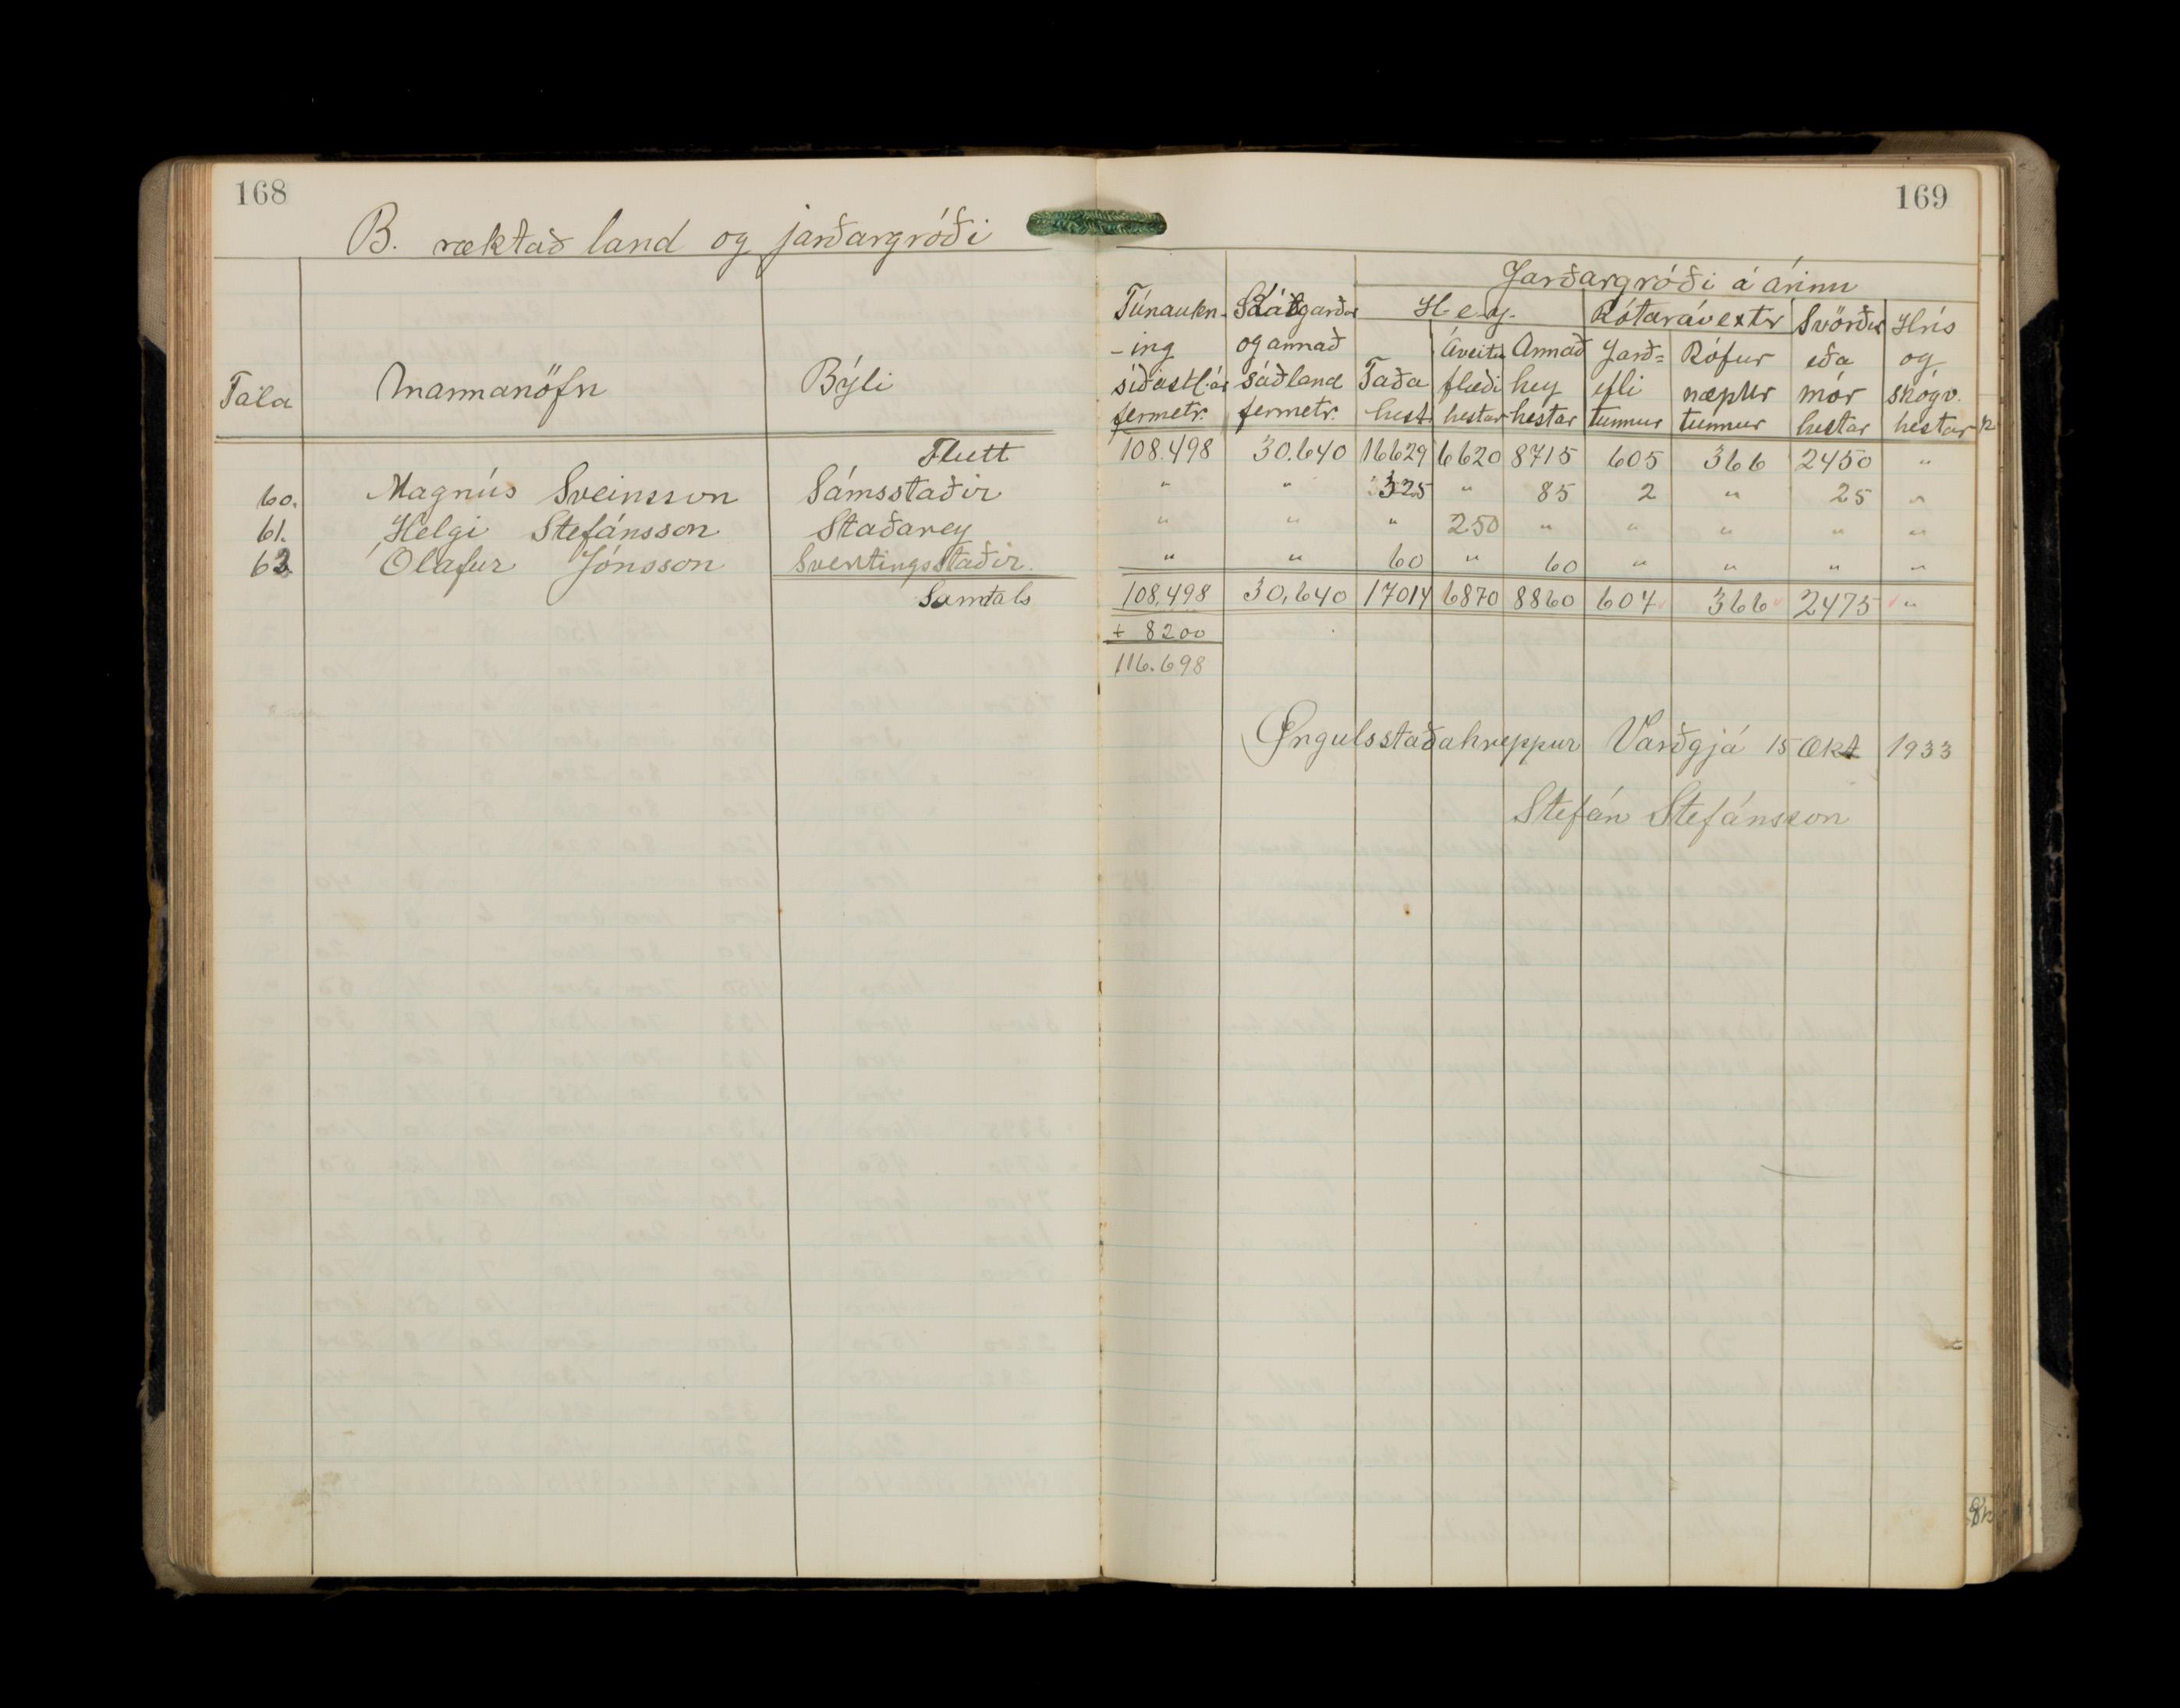 168
B. ræktað land og jarðargróði
Tala Mannanöfn Býli
Flutt
60. Magnús Sveinsson Sámsstaðir
61. Helgi Stefánsson Staðarey
62 Ólafur Jónsson Svertingsstaðir.
Samtals
169
Jarðargróði á árinu
Túnaukn- garðar Hey. Rótarávextr Svörður Hrís
-ing og annað Áveitu Annað Jarð= Rófur eða og
síðastl. ár sáðland Taða flæði hey epli næpur mór skógv.
fermetr. fermetr. hest. hestar hestar tunnur tunnur hestar hestar
108.498 30.640 16629 6620 8715 605 366 2450 "
" " 325 " 85 2 " 25 "
" " " 250 " " " " "
" " 60 " 60 " " " "
108.498 30,640 17014 6870 8860 607 366 2475 "
+ 8200
116.698
Öngulsstaðahreppur Varðgjá 15 Okt 1933
Stefán Stefánsson